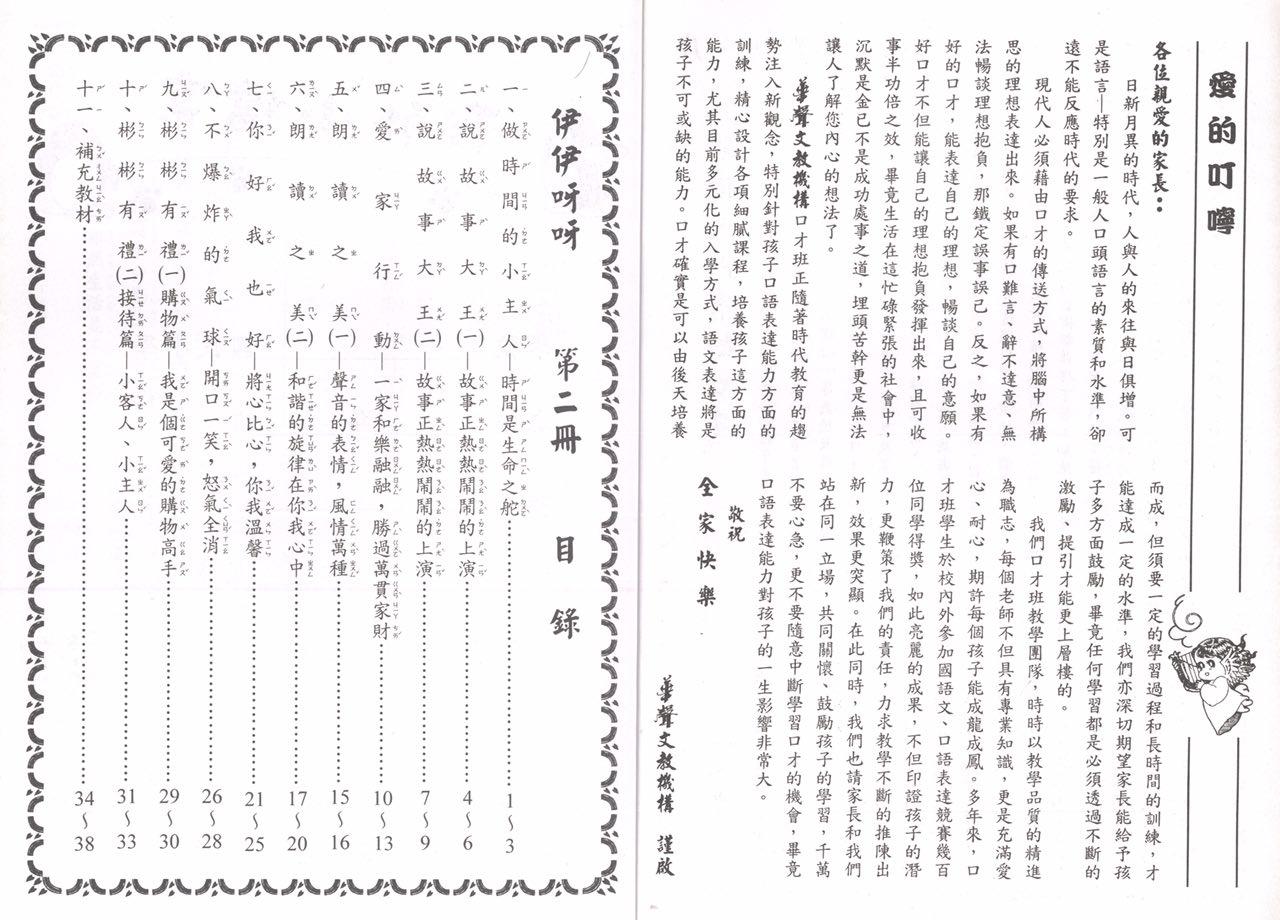 愛的叮嚀
各位親愛的家長：
日新月異的時代，人與人的來往與日俱增。可
是語言—特別是一般人口頭語言的素質和水準，卻
遠不能反應時代的要求。
現代人必須藉由口才的傳送方式，將腦中所構
思的理想表達出來。如果有口難言、辭不達意、無
法暢談理想抱負，那鐵定誤事誤己。反之，如果有
好的口才，能表達自己的理想，暢談自己的意願。
好口才不但能讓自己的理想抱負發揮出來，且可收
事半功倍之效，畢竟生活在這忙碌緊張的社會中，
沉默是金已不是成功處事之道，埋頭苦幹更是無法
讓人了解您內心的想法了。
華聲文教機構口才班正隨著時代教育的趨
勢注入新觀念，特別針對孩子口語表達能力方面的
訓練，精心設計各項細膩課程，培養孩子這方面的
能力，尤其目前多元化的入學方式，語文表達將是
孩子不可或缺的能力。口才確實是可以由後天培養
而成，但須要一定的學習過程和長時間的訓練，才
能達成一定的水準，我們亦深切期望家長能給予孩
子多方面鼓勵，畢竟任何學習都是必須透過不斷的
激勵、提引才能更上層樓的。
我們口才班教學團隊，時時以教學品質的精進
為職志，每個老師不但具有專業知識，更是充滿愛
心、耐心，期許每個孩子能成龍成鳳。多年來，口
才班學生於校內外參加國語文、口語表達競賽幾百
位同學得獎，如此亮麗的成果，不但印證孩子的潛
力，更鞭策了我們的責任，力求教學不斷的推陳出
新，效果更突顯。在此同時，我們也請家長和我們
站在同一立場，共同關懷、鼓勵孩子的學習，千萬
不要心急，更不要隨意中斷學習口才的機會，畢竟
口語表達能力對孩子的一生影響非常大。
敬祝
全家快樂
華聲文教機構 謹啟
伊伊呀呀 第二冊 目錄
一、做時間的小主人—時間是生命之舵……1～3
二、說故事大王(一)—故事正熱熱鬧鬧的上演……4～6
三、說故事大王(二)—故事正熱熱鬧鬧的上演……7～9
四、愛家行動—一家和樂融融，勝過萬貫家財……10～13
五、朗讀之美(一)—聲音的表情，風情萬種……15～16
六、朗讀之美(二)—和諧的旋律在你我心中……17～20
七、你好我也好—將心比心，你我溫馨……21～25
八、不爆炸的氣球—開口一笑，怒氣全消……26～28
九、彬彬有禮(一)購物篇—我是個可愛的購物高手……29～30
十、彬彬有禮(二)接待篇—小客人、小主人……31～33
十一、補充教材……34～38